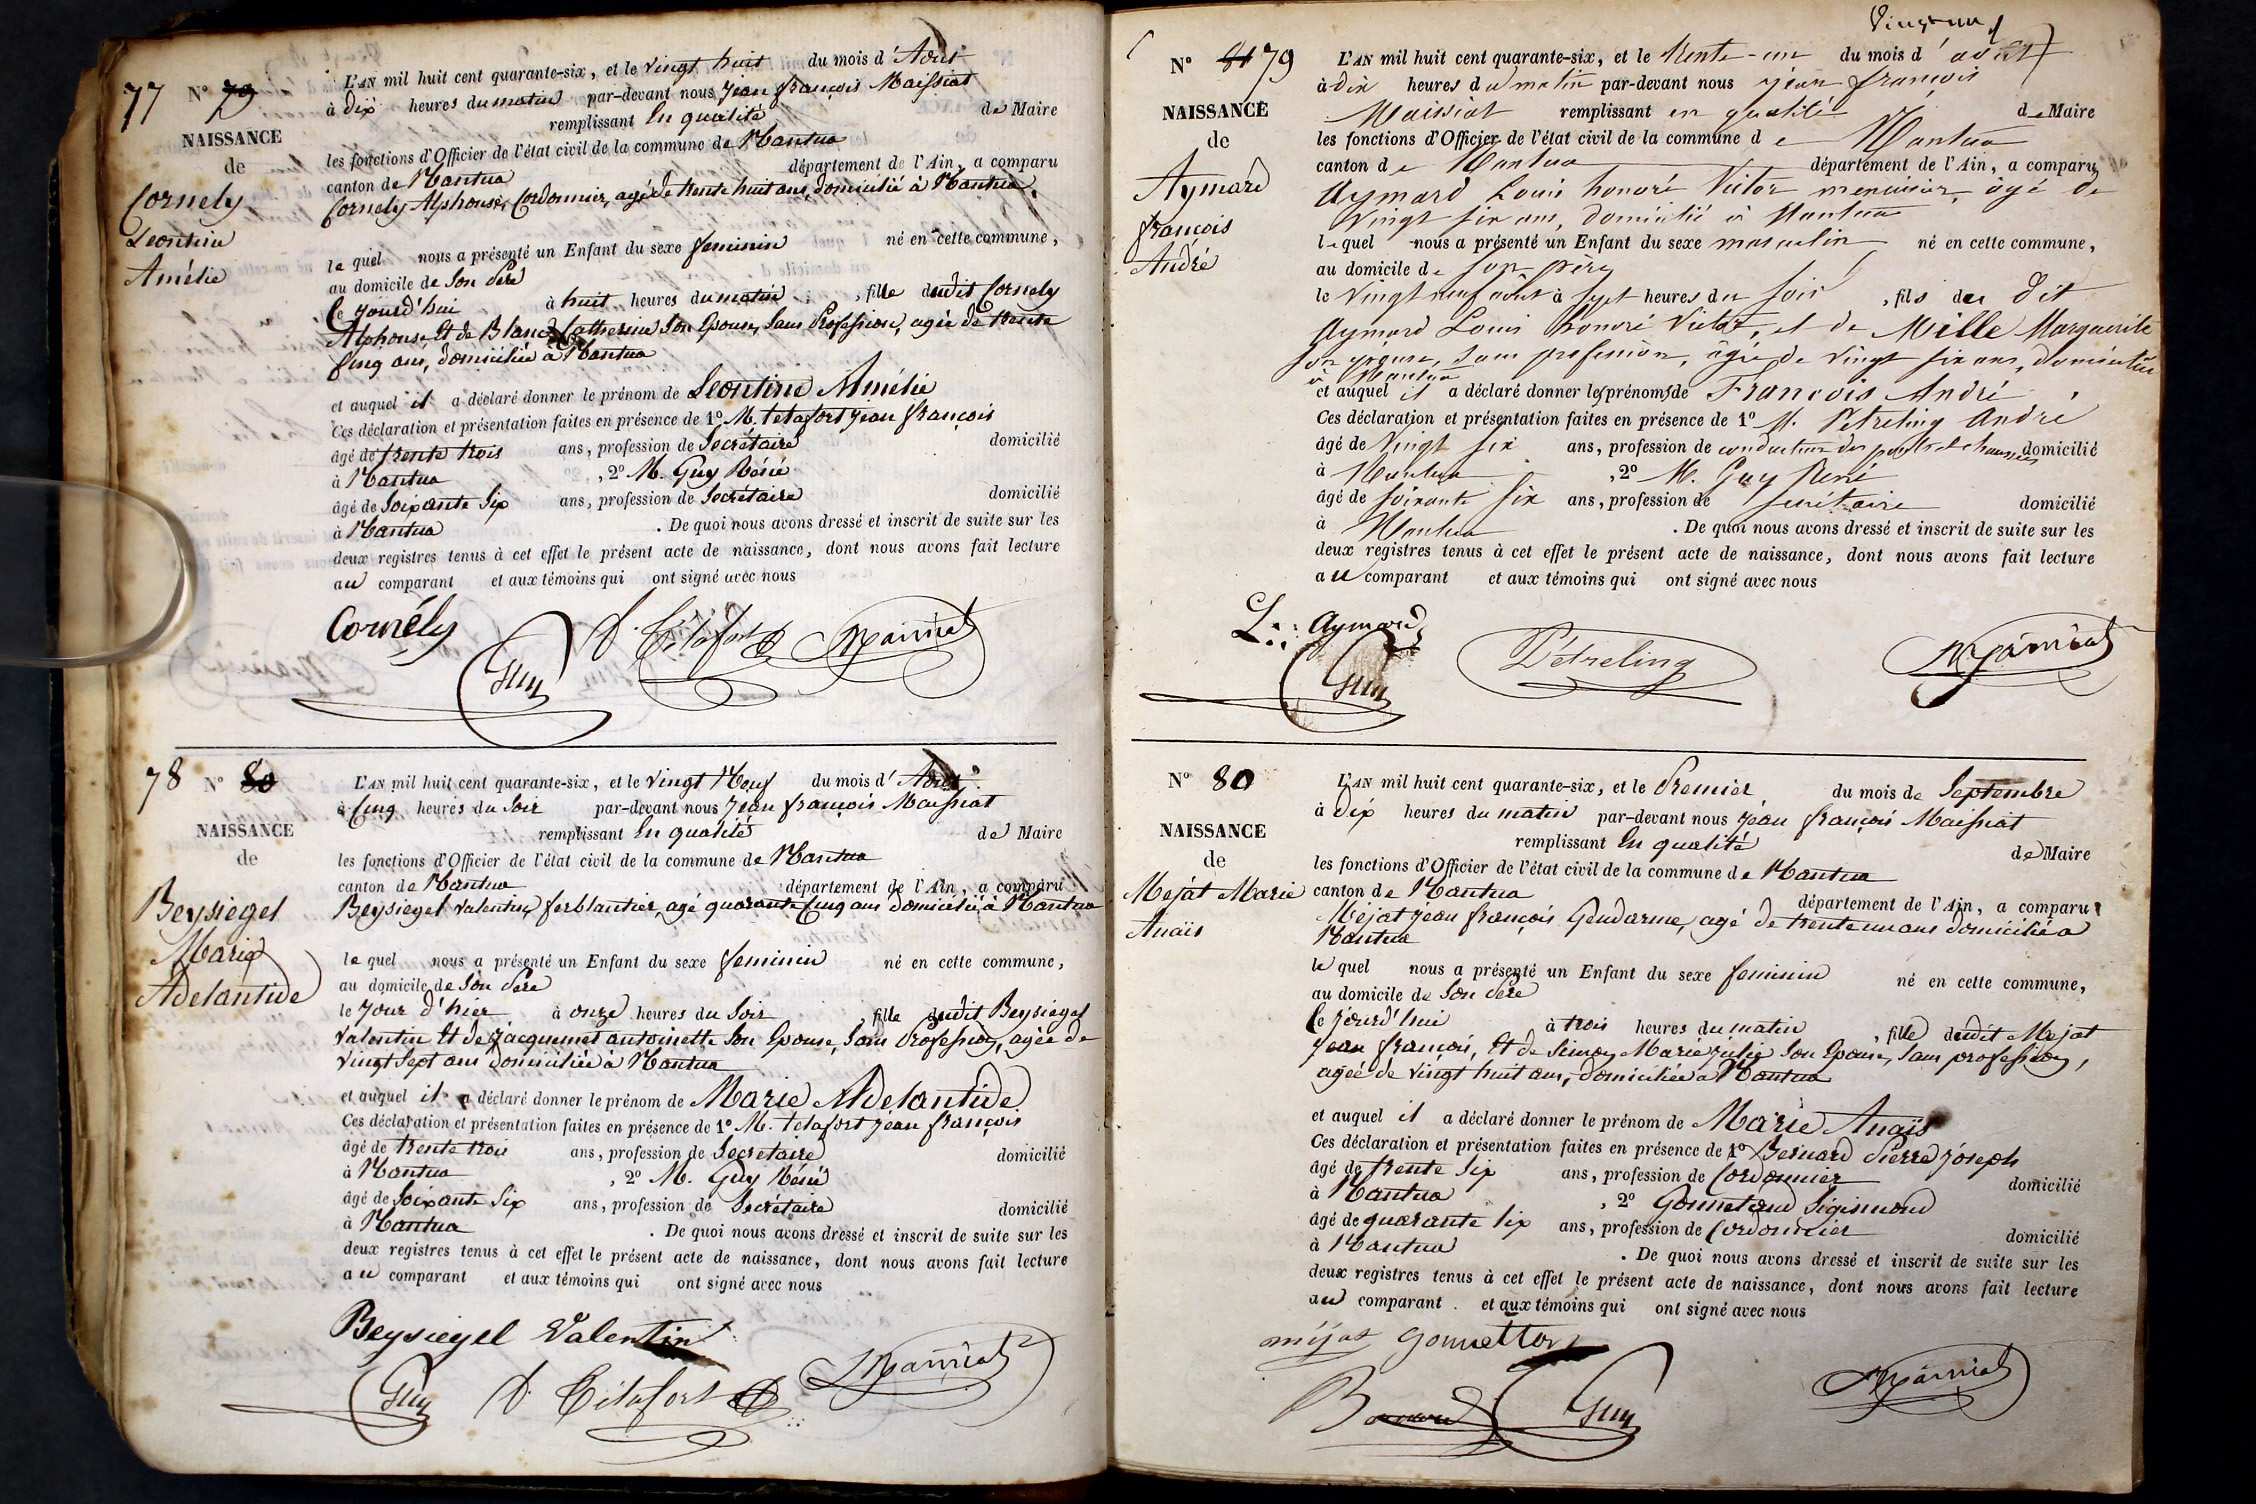 77 N° 79
NAISSANCE
de
Cornely
Leontine
Amélie
L'AN mil huit cent quarante-six, et le vingt huit du mois d'Aout
à dix heures du matin par-devant nous jean françois Maissiat
remplissant En qualité de Maire
les fonctions d'Officier de l'état civil de la commune de Nantua
canton de Nantua département de l'Ain, a comparu
Cornely Alphonse, Cordonnier, agé de trente huit ans, domicilié à Nantua
le quel nous a présenté un Enfant du sexe feminin né en cette commune,
au domicile de Son Père
Ce jourd'hui à huit heures du matin, fille dudit Cornely
Alphonse Et de Blanc Catherine Son Epouse, Sans Profession, agée de trente
Cinq ans, domiciliée à Nantua
et auquel il a déclaré donner le prénom de Leontine Amélie
Ces déclaration et présentation faites en présence de 1° M. tetafort jean françois
âgé de trente trois ans, profession de Secrétaire domicilié
à Nantua, 2° M. Guy Réné
âgé de Soixante Six ans, profession de Secrétaire domicilié
à Nantua. De quoi nous avons dressé et inscrit de suite sur les
deux registres tenus à cet effet le présent acte de naissance, dont nous avons fait lecture
au comparant et aux témoins qui ont signé avec nous
Cornély
Guy
Maissiat
78 N° 80
NAISSANCE
de
Beysiegel
Marie
Adelantide
L'AN mil huit cent quarante-six, et le vingt Neuf du mois d'Aout
à Cinq heures du Soir par-devant nous jean françois Maissiat
remplissant En qualité de Maire
les fonctions d'Officier de l'état civil de la commune de Nantua
canton de Nantua département de l'Ain, a comparu
Beysiegel Valentin, ferblantier, agé quarante Cinq ans domicilié à Nantua
le quel nous a présenté un Enfant du sexe feminin né en cette commune,
au domicile de Son Père
le jour d'hier à onze heures du Soir, fille dudit Beysiegel
Valentin Et de jacquemet antoinette Son Epouse, Sans Profession, agée de
vingt Sept ans domiciliée à Nantua
et auquel il a déclaré donner le prénom de Marie Adelantide
Ces déclaration et présentation faites en présence de 1° M. tetafort jean françois
âgé de trente trois ans, profession de Secrétaire domicilié
à Nantua, 2° M. Guy Réné
âgé de Soixante Six ans, profession de Secrétaire domicilié
à Nantua. De quoi nous avons dressé et inscrit de suite sur les
deux registres tenus à cet effet le présent acte de naissance, dont nous avons fait lecture
au comparant et aux témoins qui ont signé avec nous
Beysiegel Valentin
Guy
Maissiat
N° 81 79
NAISSANCE
de
Aymard
françois
André
L'AN mil huit cent quarante-six, et le trente-un du mois d'août
à dix heures du matin par-devant nous jean françois
Maissiat remplissant en qualité de Maire
les fonctions d'Officier de l'état civil de la commune de Nantua
canton de Nantua département de l'Ain, a comparu
Aymard Louis honoré Victor menuisier, âgé de
vingt six ans, domicilié à Nantua
lequel nous a présenté un Enfant du sexe masculin né en cette commune,
au domicile de son père
le vingt neuf août à sept heures du soir, fils du dit
Aymard Louis honoré Victor, et de Mille Marguerite
son epouse, sans profession, âgée de vingt six ans, domiciliée
à Nantua
et auquel il a déclaré donner les prénoms de François André
Ces déclaration et présentation faites en présence de 1° M. Pétreling André
âgé de vingt six ans, profession de conducteur des ponts et chaussées domicilié
à Nantua, 2° M. Guy René
âgé de soixante six ans, profession de secrétaire domicilié
à Nantua. De quoi nous avons dressé et inscrit de suite sur les
deux registres tenus à cet effet le présent acte de naissance, dont nous avons fait lecture
au comparant et aux témoins qui ont signé avec nous
L: Aymard
Guy
Pétreling
Maissiat
N° 80
NAISSANCE
de
Mejat Marie
Anaïs
L'AN mil huit cent quarante-six, et le Premier du mois de Septembre
à dix heures du matin par-devant nous jean françois Maissiat
remplissant En qualité de Maire
les fonctions d'Officier de l'état civil de la commune de Nantua
canton de Nantua département de l'Ain, a comparu
Mejat jean françois Gendarme, agé de trente un ans domicilié à
Nantua
le quel nous a présenté un Enfant du sexe feminin né en cette commune,
au domicile de Son Père
Ce jourd'hui à trois heures du matin, fille dudit Mejat
jean françois, Et de Simon Marie julie Son Epouse, Sans profession,
agée de vingt huit ans, domiciliée à Nantua
et auquel il a déclaré donner le prénom de Marie Anaïs
Ces déclaration et présentation faites en présence de 1° Bernard Pierre joseph
âgé de trente Six ans, profession de Cordonnier domicilié
à Nantua, 2° Gonnetand Sigismond
âgé de quarante Six ans, profession de Cordonnier domicilié
à Nantua. De quoi nous avons dressé et inscrit de suite sur les
deux registres tenus à cet effet le présent acte de naissance, dont nous avons fait lecture
au comparant et aux témoins qui ont signé avec nous
Guy
Maissiat